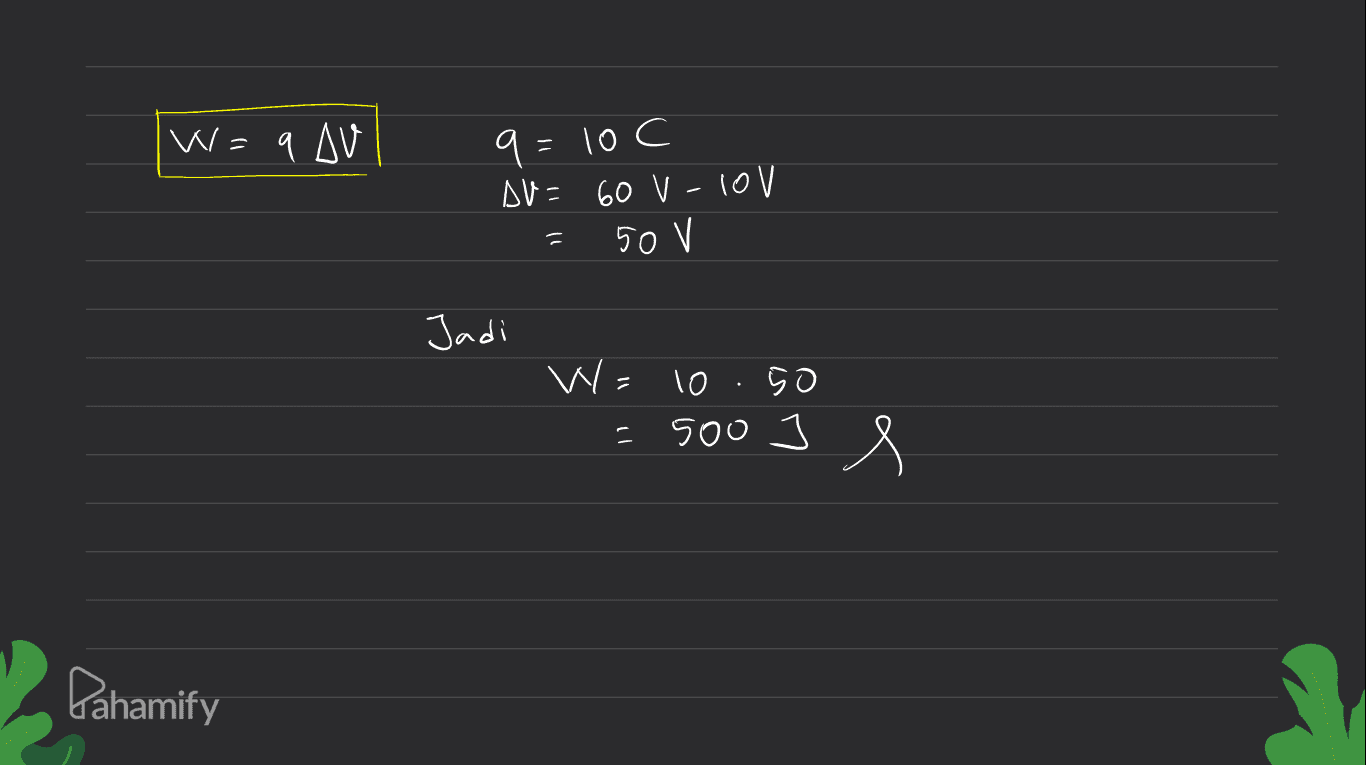 W = q ΔV
q = 10 C
ΔV = 60 V - 10 V
= 50 V
Jadi
W = 10 . 50
= 500 J
Pahamify